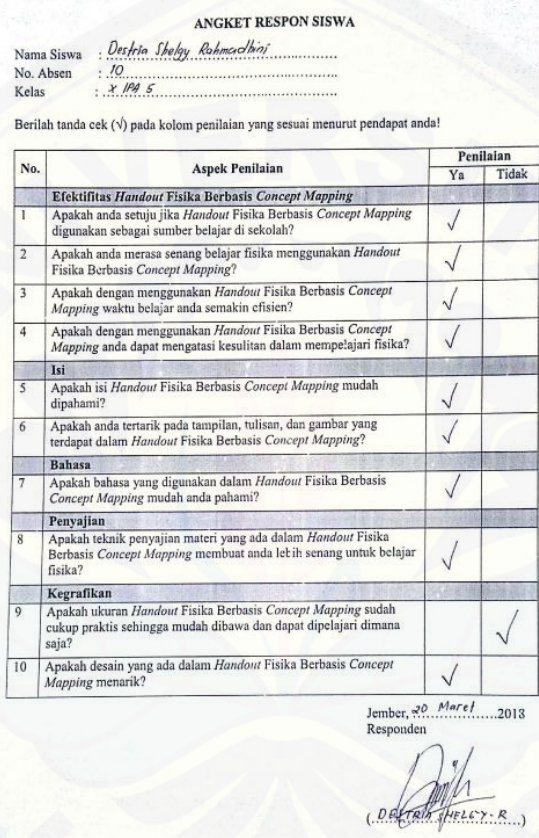 ANGKET RESPON SISWA
Nama Siswa : Destria Shelgy Rahmadhini
No. Absen : 10
Kelas : X IPA 5
Berilah tanda cek (√) pada kolom penilaian yang sesuai menurut pendapat anda!
No. Aspek Penilaian Penilaian
Ya Tidak
Efektifitas Handout Fisika Berbasis Concept Mapping
1 Apakah anda setuju jika Handout Fisika Berbasis Concept Mapping √
digunakan sebagai sumber belajar di sekolah?
2 Apakah anda merasa senang belajar fisika menggunakan Handout √
Fisika Berbasis Concept Mapping?
3 Apakah dengan menggunakan Handout Fisika Berbasis Concept √
Mapping waktu belajar anda semakin efisien?
4 Apakah dengan menggunakan Handout Fisika Berbasis Concept √
Mapping anda dapat mengatasi kesulitan dalam mempelajari fisika?
Isi
5 Apakah isi Handout Fisika Berbasis Concept Mapping mudah √
dipahami?
6 Apakah anda tertarik pada tampilan, tulisan, dan gambar yang √
terdapat dalam Handout Fisika Berbasis Concept Mapping?
Bahasa
7 Apakah bahasa yang digunakan dalam Handout Fisika Berbasis √
Concept Mapping mudah anda pahami?
Penyajian
8 Apakah teknik penyajian materi yang ada dalam Handout Fisika √
Berbasis Concept Mapping membuat anda lebih senang untuk belajar
fisika?
Kegrafikan
9 Apakah ukuran Handout Fisika Berbasis Concept Mapping sudah √
cukup praktis sehingga mudah dibawa dan dapat dipelajari dimana
saja?
10 Apakah desain yang ada dalam Handout Fisika Berbasis Concept √
Mapping menarik?
Jember, 20 Maret 2013
Responden
(DESTRIA SHELGY.R)